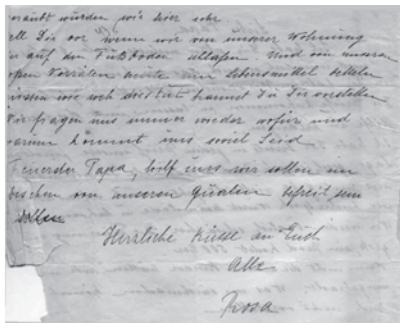 geraubt würden wie hier sehr
ell Dir vor wenn wir von unserer Wohnung
n auf den Fußboden schlafen. Und von unseren
oßen Vorräten heute um Lebensmittel betteln
üssten wie weh dies tut kannst Du Dir vorstellen
Wir fragen uns immer wieder wofür und
warum kommt uns soviel Leid
Teuerster Papa, hilf uns wir sollen ein
bischen von unseren Qualen befreit sein
Herzliche Küsse an Euch
Alle
Rosa